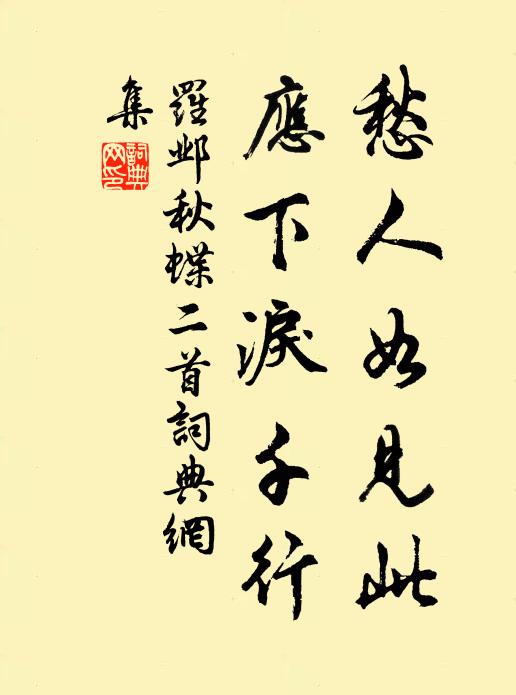 愁人如見此
應下淚千行
羅鄴秋蝶二首詞典網
集
詞典網印